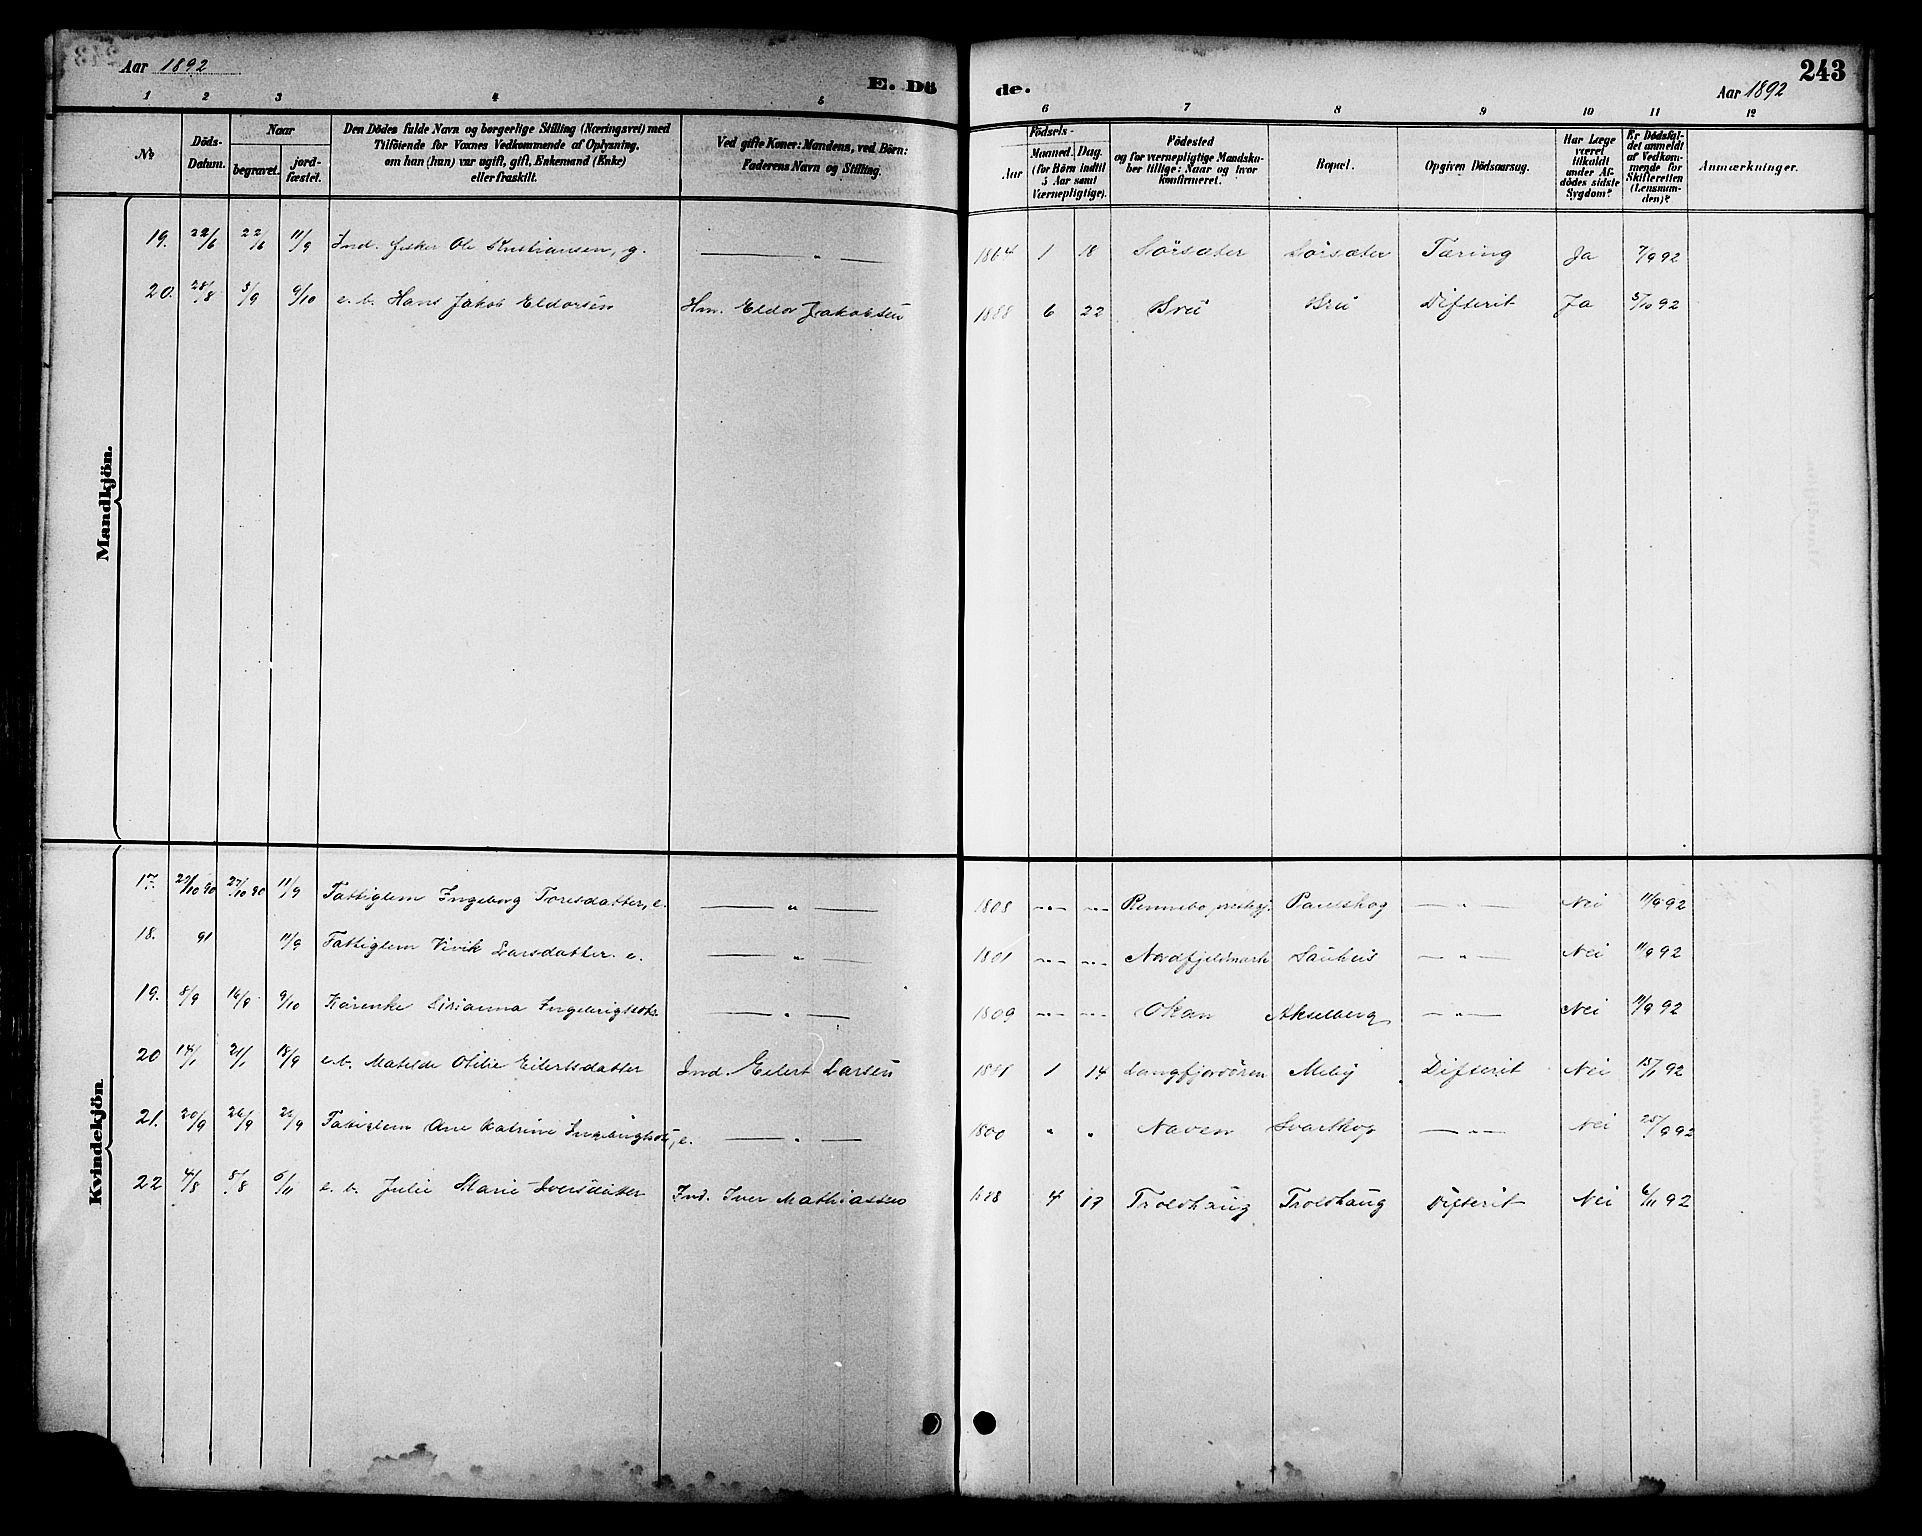 Aar 1892
E. Dö
de.
Aar 1892
243
1 2 3 4 5 6 7 8 9 10 11 12
No
Döds-Datum.
Naar
begravet.
jord-fæstet.
Den Dödes fulde Navn og borgerlige Stilling (Næringsvei) med
Tilföiende for Voxnes Vedkommende af Oplysning,
om han (hun) var ugift, gift, Enkemand (Enke)
eller fraskilt.
Ved gifte Koner: Mandens, ved Börn:
Faderens Navn og Stilling.
Födsels-
Aar
Maaned. Dag.
(for Börn indtil
5 Aar samt
Værnepligtige).
Födested
og for værnepligtige Mandska-
ber tillige: Naar og hvor
konfirmeret.
Bopæl.
Opgiven Dödsaarsag.
Har Læge
været
tilkaldt
under Af-
dödes sidste
Sygdom?
Er Dödsfal-
det anmeldt
af Vedkom-
mende for
Skifteretten
(Lensman-
den)?
Anmærkninger.
Mandkjön.
19. 22/6 22/6 11/9 Ind. fisker Ole Kristiansen, g. — „ — 1864 1 18 Sörsæter Sörsæter Tæring Ja 7/9 92
20. 28/8 3/9 9/10 e. b. Hans Jakob Eldorsen Hm. Eldor Jakobsen 1888 6 22 Bru Bru Difterit Ja 3/10 92
Kvindekjön
17. 27/10 90 11/9 Fattiglem Ingeborg Toresdatter, e. — „ — 1808 Rennebo prestegj. Paulskog — „ — Nei 11/9 92
18. 91 11/9 Fattiglem Vivik Larsdatter. e. — „ — 1801 Nordfjeldmark Sauhus — „ — Nei 11/9 92
19. 8/9 16/9 9/10 Kårenke — „ — 1809 Okan Akselberg — „ — Nei 11/9 92
20 14/1 21/1 18/9 e. b. Matilde Otilie Eilertsdatter Ind. Eilert Larsen 1 14 Langfjordören Meby Difterit Nei 15/1 92
21. 20/9 26/9 Fattiglem Ane Katrine e. — „ — 1800 „ „ Naven Svartkop — „ — Nei 25/9 92
22 4/8 8/8 6/11 e. b. Julie Marie Iversdatter Ind. Iver Mathiassen 1888 4 17 Troldhaug Troldhaug Difterit Nei 6/11 92